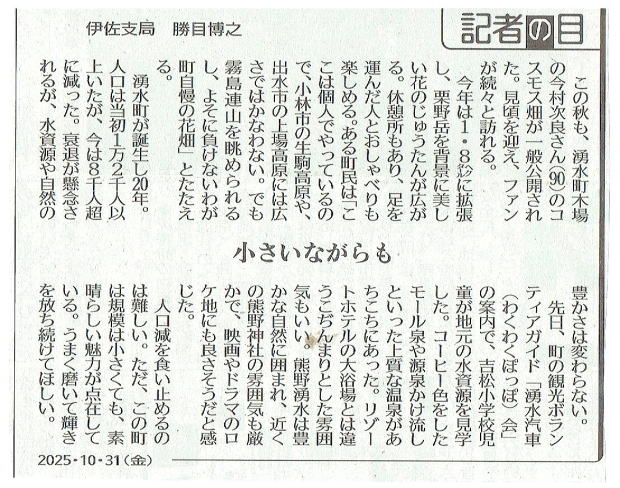 記者の目
伊佐支局 勝目博之
小さいながらも
この秋も、湧水町木場
の今村次良さん(90)のコ
スモス畑が一般公開され
た。見頃を迎え、ファン
が続々と訪れる。
今年は1・8㌶に拡張
し、栗野岳を背景に美し
い花のじゅうたんが広が
る。休憩所もあり、足を
運んだ人とおしゃべりも
楽しめる。ある町民は「こ
こは個人でやっているの
で、小林市の生駒高原や、
出水市の上場高原には広
さではかなわない。でも
霧島連山を眺められる
し、よそに負けないわが
町自慢の花畑」とたたえ
る。
湧水町が誕生し20年。
人口は当初1万2千人以
上いたが、今は8千人超
に減った。衰退が懸念さ
れるが、水資源や自然の
豊かさは変わらない。
先日、町の観光ボラン
ティアガイド「湧水汽車
(わくわくぽっぽ)会」
の案内で、吉松小学校児
童が地元の水資源を見学
した。コーヒー色をした
モール泉や源泉かけ流し
といった上質な温泉があ
ちこちにあった。リゾー
トホテルの大浴場とは違
うこぢんまりとした雰囲
気もいい。熊野湧水は豊
かな自然に囲まれ、近く
の熊野神社の雰囲気も厳
かで、映画やドラマのロ
ケ地にも良さそうだと感
じた。
人口減を食い止めるの
は難しい。ただ、この町
は規模は小さくても、素
晴らしい魅力が点在して
いる。うまく磨いて輝き
を放ち続けてほしい。
2025・10・31(金)